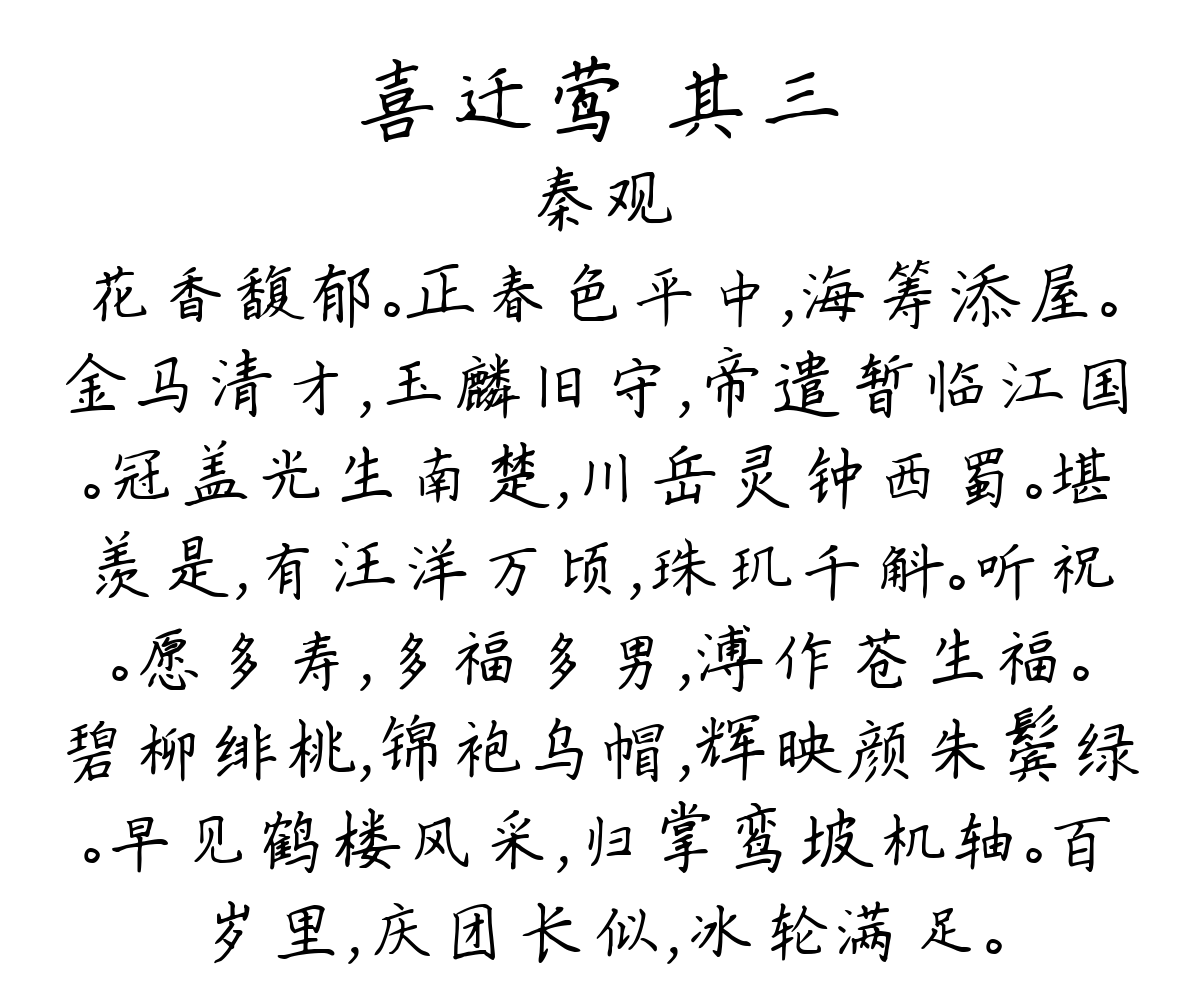 喜迁莺 其三
秦观
花香馥郁。正春色平中,海筹添屋。
金马清才,玉麟旧守,帝遣暂临江国
。冠盖光生南楚,川岳灵钟西蜀。堪
羡是,有汪洋万顷,珠玑千斛。听祝
。愿多寿,多福多男,溥作苍生福。
碧柳绯桃,锦袍乌帽,辉映颜朱鬓绿
。早见鹤楼风采,归掌鸾坡机轴。百
岁里,庆团长似,冰轮满足。